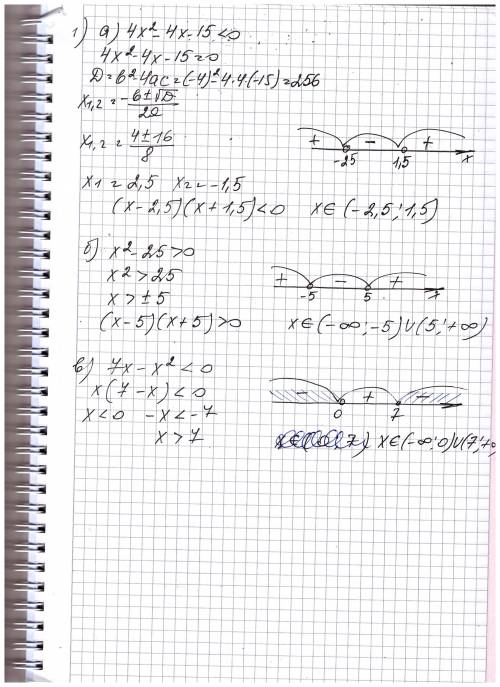 1) а) 4x² - 4x - 15 < 0
4x² - 4x - 15 = 0
D = b² - 4ac = (-4)² - 4·4(-15) = 256
x1,2 = (-b ± √D)/2a
x1,2 = (4 ± 16)/8
+ - +
-2,5 1,5 x
x1 = 2,5 x2 = -1,5
(x - 2,5)(x + 1,5) < 0 x ∈ (-2,5; 1,5)
б) x² - 25 > 0
x² > 25
x > ± 5
+ - +
-5 5 x
(x - 5)(x + 5) > 0 x ∈ (-∞; -5) ∪ (5; +∞)
в) 7x - x² < 0
x(7 - x) < 0
- + -
0 7
x < 0 -x < -7
x > 7 x ∈ (-∞; 0) ∪ (7; +∞